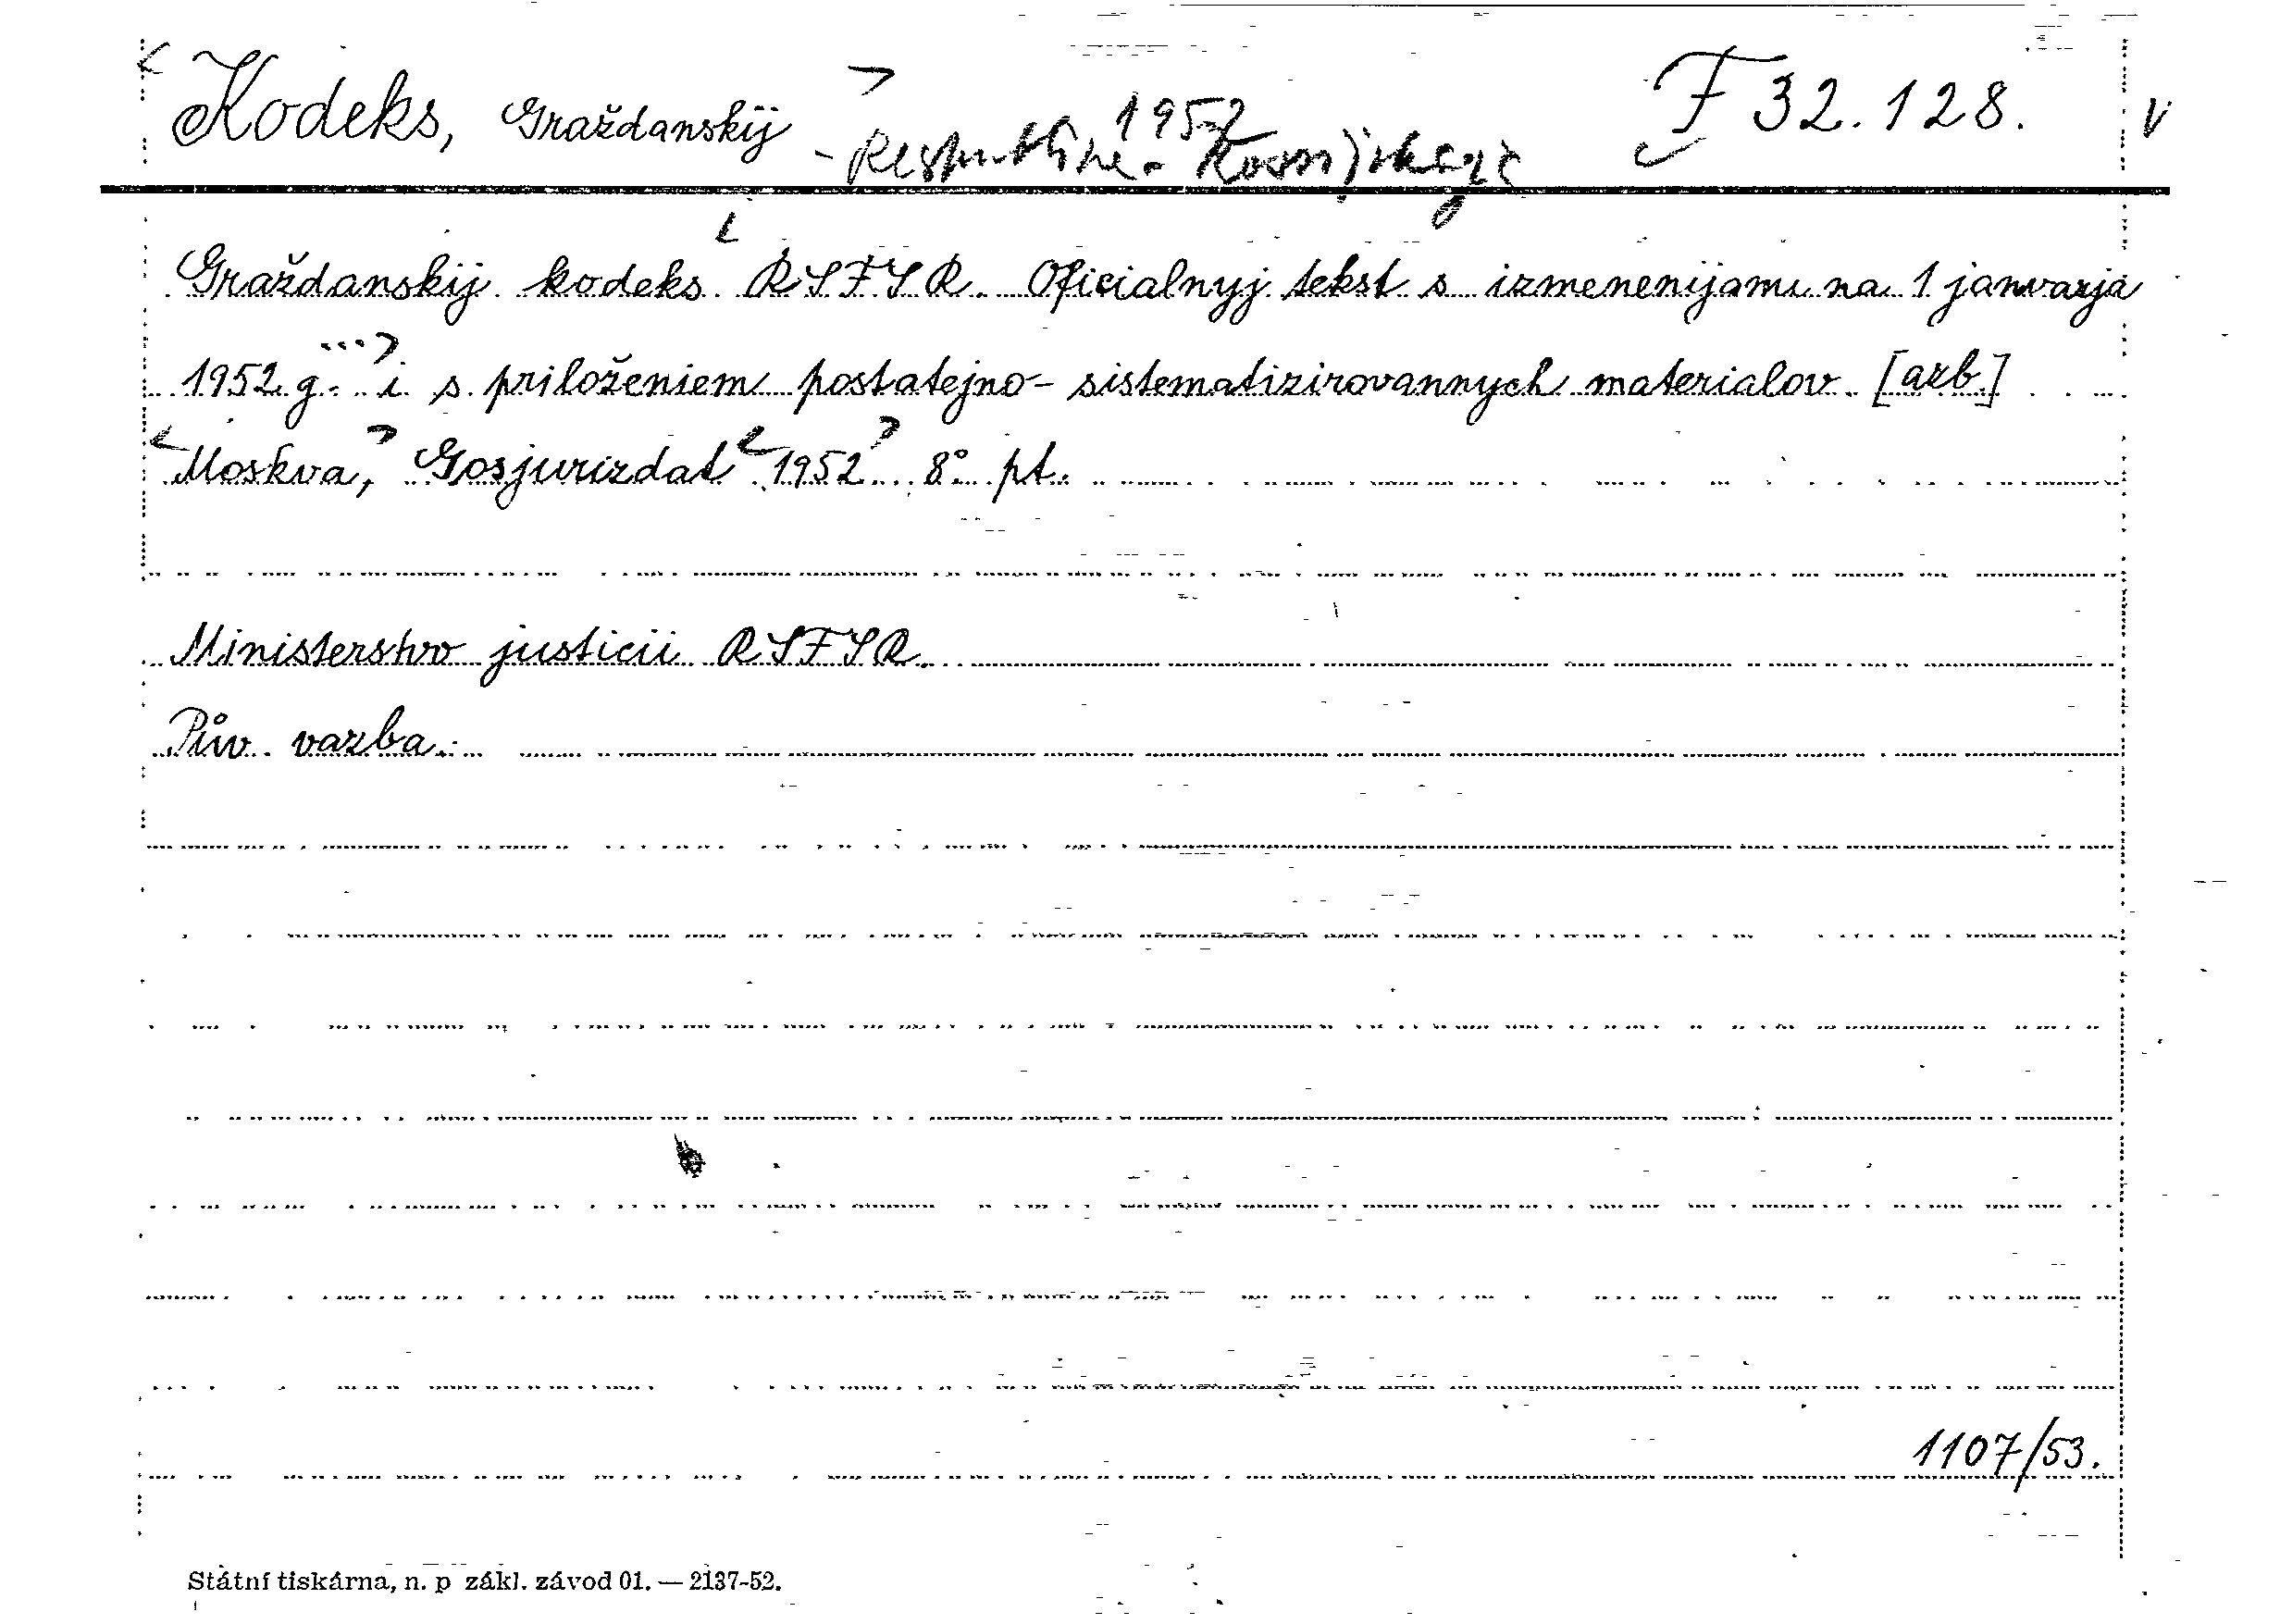 Kodeks, Graždanskij - Republika - Rossijskaja 1952 F 32.128. V
Graždanskij kodeks RSFSR. Oficialnyj tekst s izmenenijami na 1 janvarja
1952 g. ... i s priloženiem postatejno-sistematizirovannych materialov. [azb.]
Moskva, Gosjurizdat 1952 8° pt.
Ministerstvo justicii RSFSR.
Pův. vazba.
1107/53.
Státní tiskárna, n. p zákl. závod 01. — 2137-52.